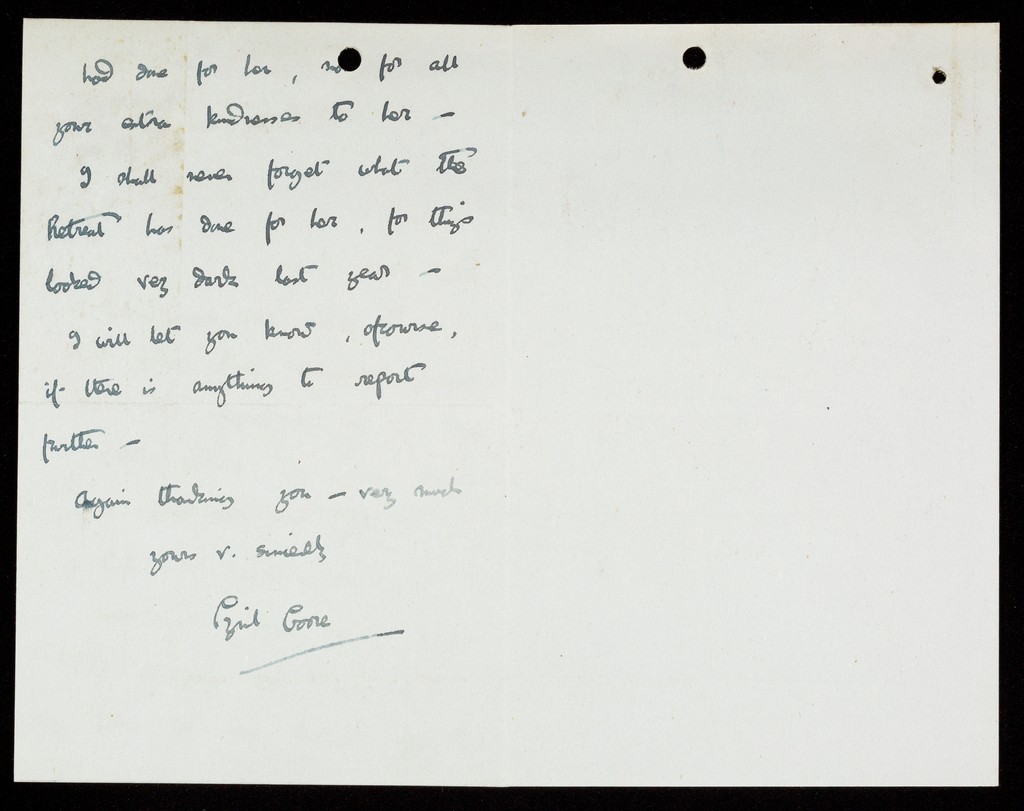 had done for her, for all
your extra kindnesses to her -
I shall never forget what the
Retreat has done for her, for things
looked very dark last year -
I will let you know, ofcourse,
if there is anything to report
further -
Again thanking you - very much
yours v. sincerely
Cyril Coore